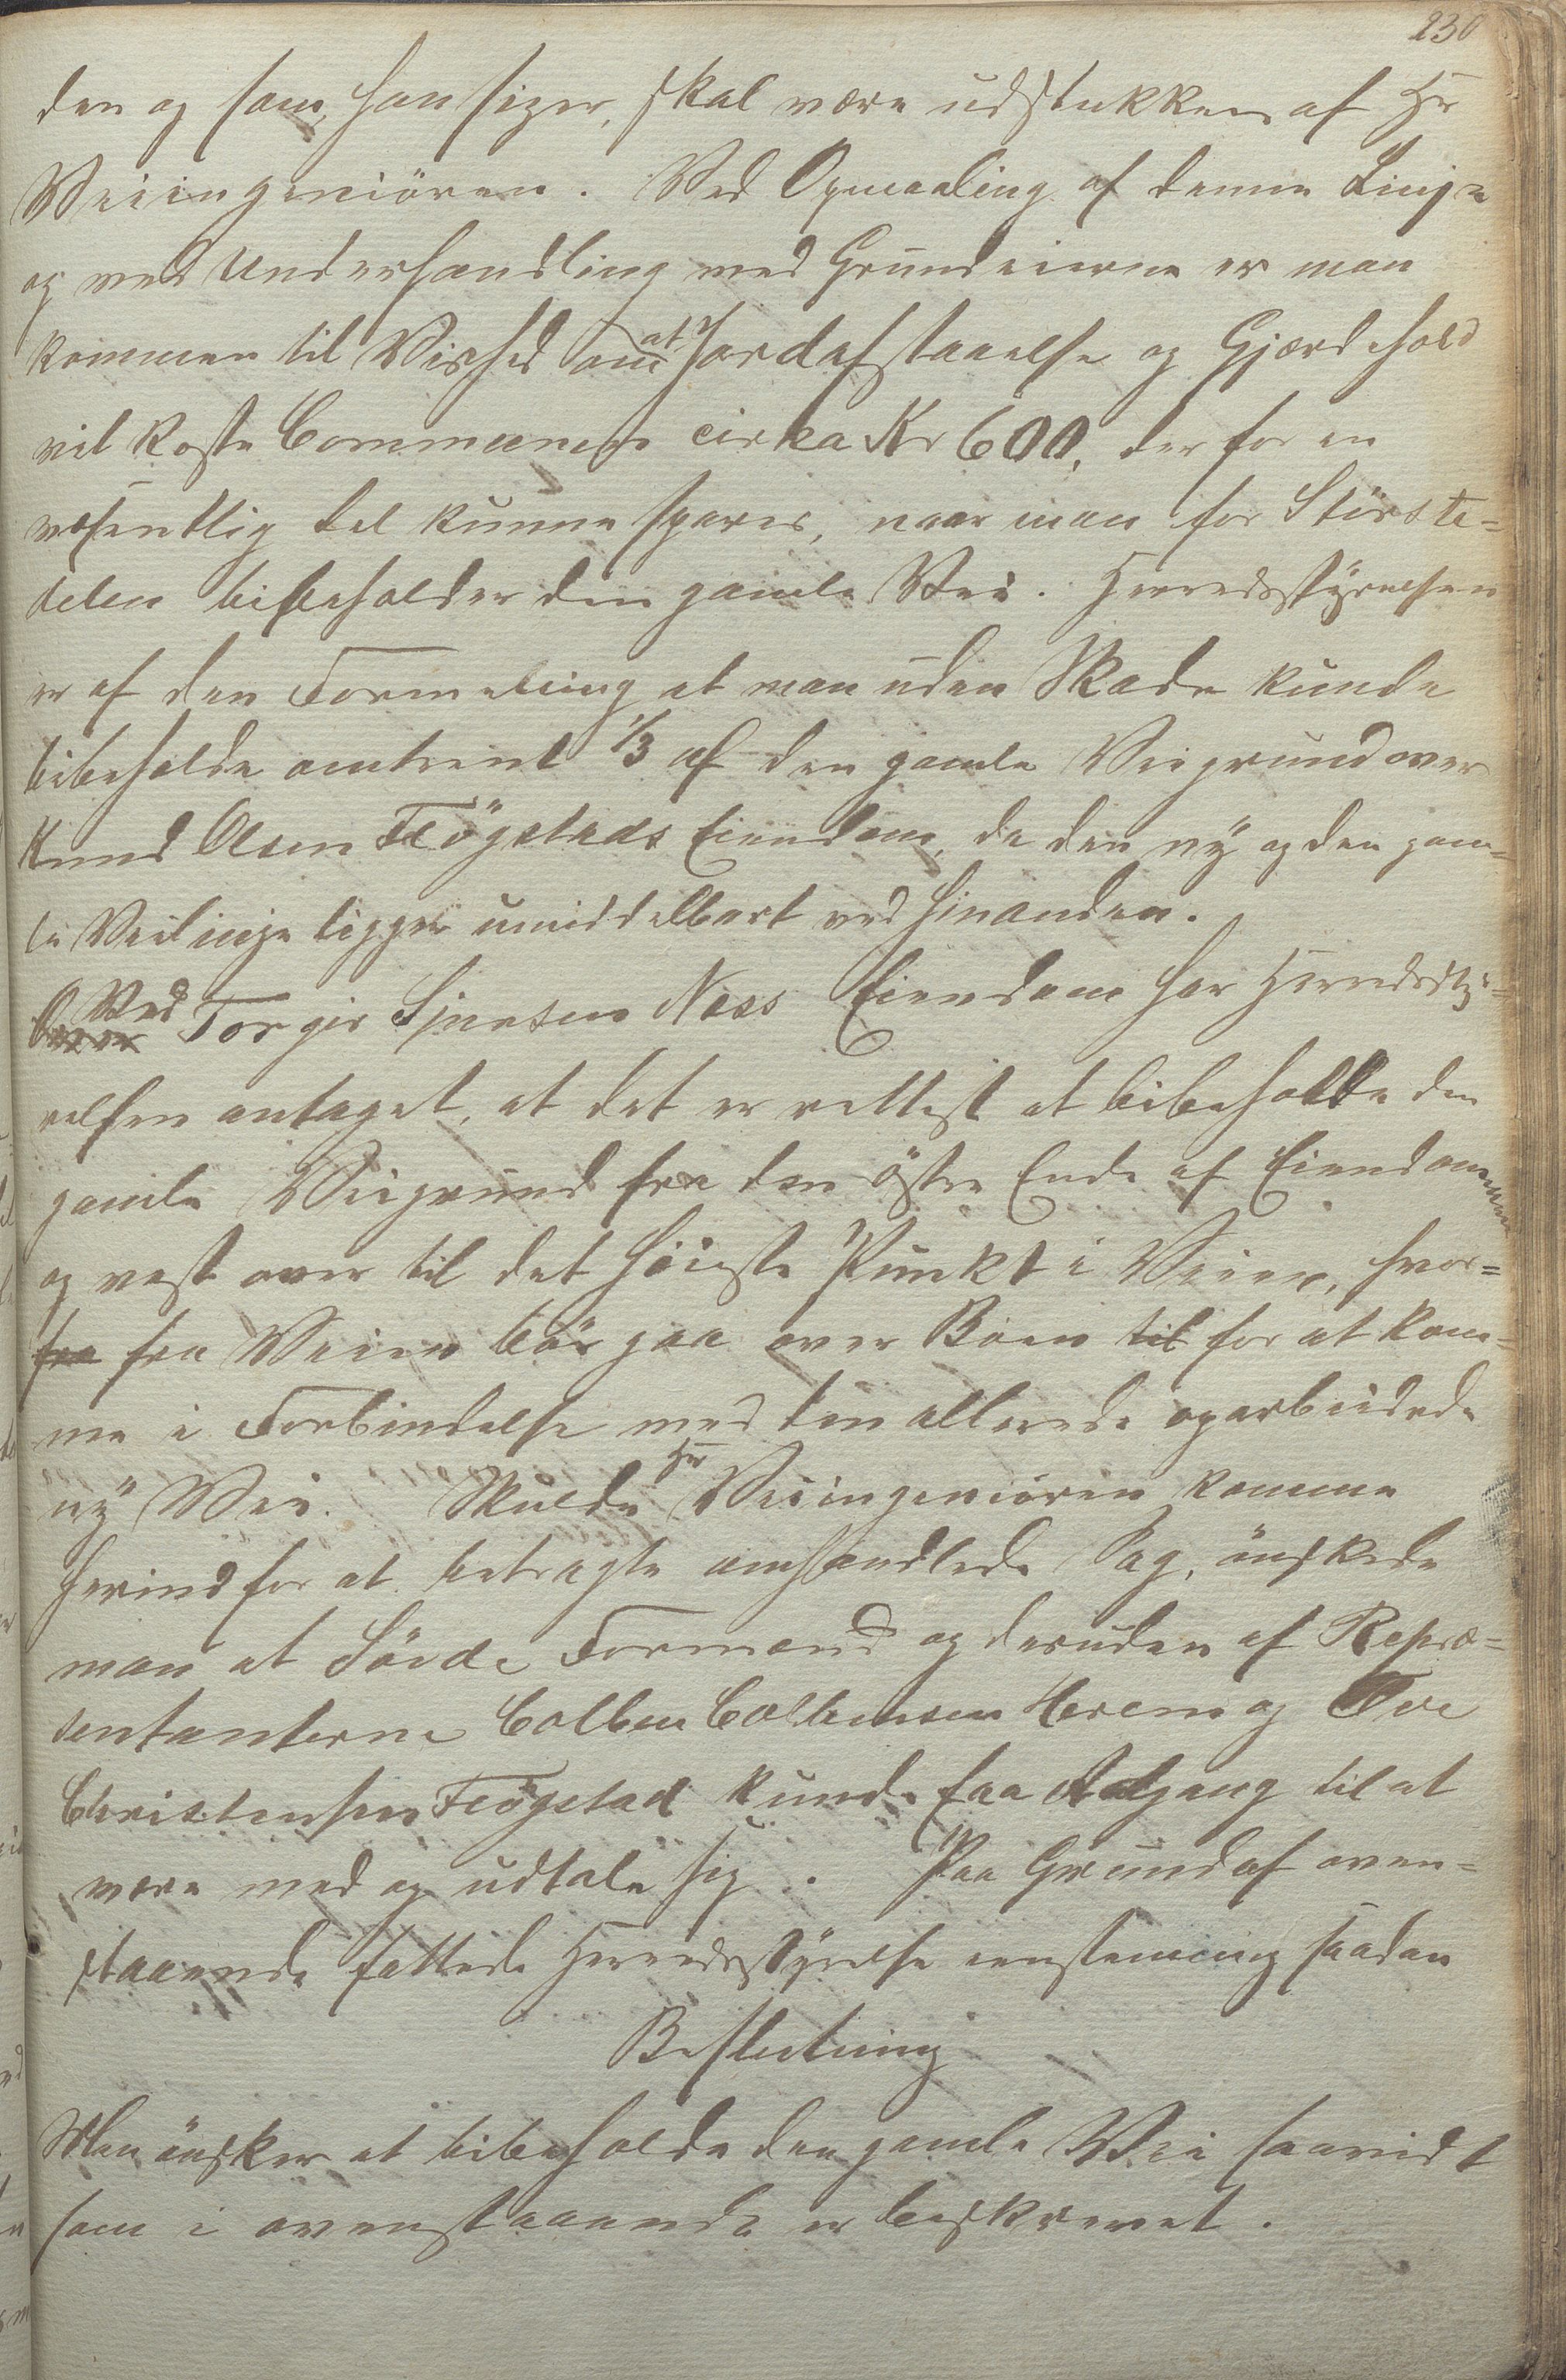 230
den og som, han siger, skal være udstukken af Hr
Veiingeniören. Ved Opmaaling af denne Linje
og ved Underhandling med Grundeierne er man
kommen til Vished om at Jordafstaaelse og Gjærdehold
vil koste Communen cirka Kr 600, der for en
væsentlig del kunne spares, naar man for Störste=
delen bibeholder den gamle Vei. Herredsstyrelsen
er af den Formening at man uden Skade kunde
bibeholde omtrent 1/3 af den gamle Veigrund over
Knud Olsen Flögstads Eiendom, da den ny og den gam=
le Veilinje ligger umiddelbart ved hinanden.
Over Ved Torger Sjursen Næss Eiendom har Herredssty=
relsen antaget, at det er rettest at bibeholde den
gamle Veigrund fra den östre Ende af Eiendommen
og vest over til det høieste Punkt i Veien, hvor=
fra fra Veien bör gaa over Bøen til for at kom=
me i Forbindelse med den allerede oparbeidede
ny Vei. Skulde Hr Veiingeniören komme
herind for at betragte omhandlede Sag, önskede
man at Søvde Formand og desuden af Repræ=
sentanterne Colben Colbensen Herem og Tore
Christensen Flögstad kunde faa Adgang til at
være med og udtale sig. Paa Grund af oven=
staaende fattede Herredsstyrelse enstemmig saadan
Beslutning
Man önsker at bibeholde den gamle Vei saavidt
som i ovenstaaende er beskrevet.